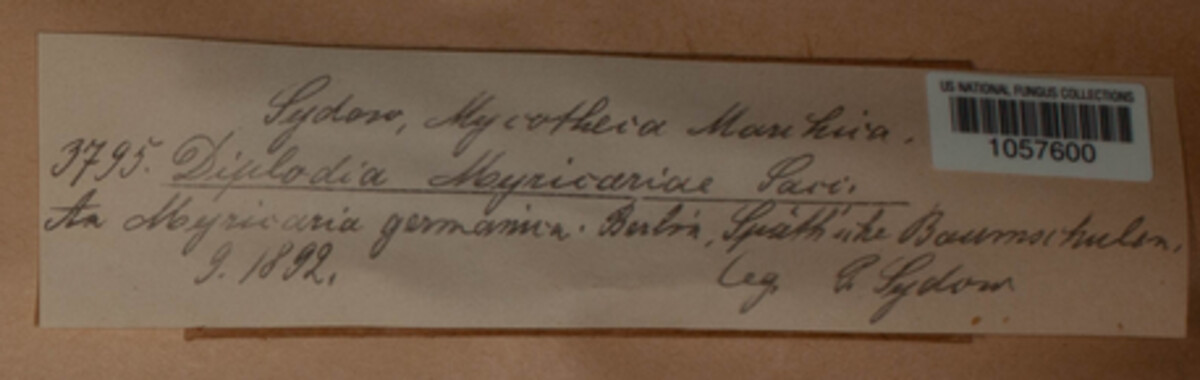 Sydow, Mycotheca Marchica.
US NATIONAL FUNGUS COLLECTIONS
1057600
3795. Diplodia Myricariae Sacc.
An Myricaria germanica. Berlin, Späth'sche Baumschulen.
9. 1892. leg. P. Sydow